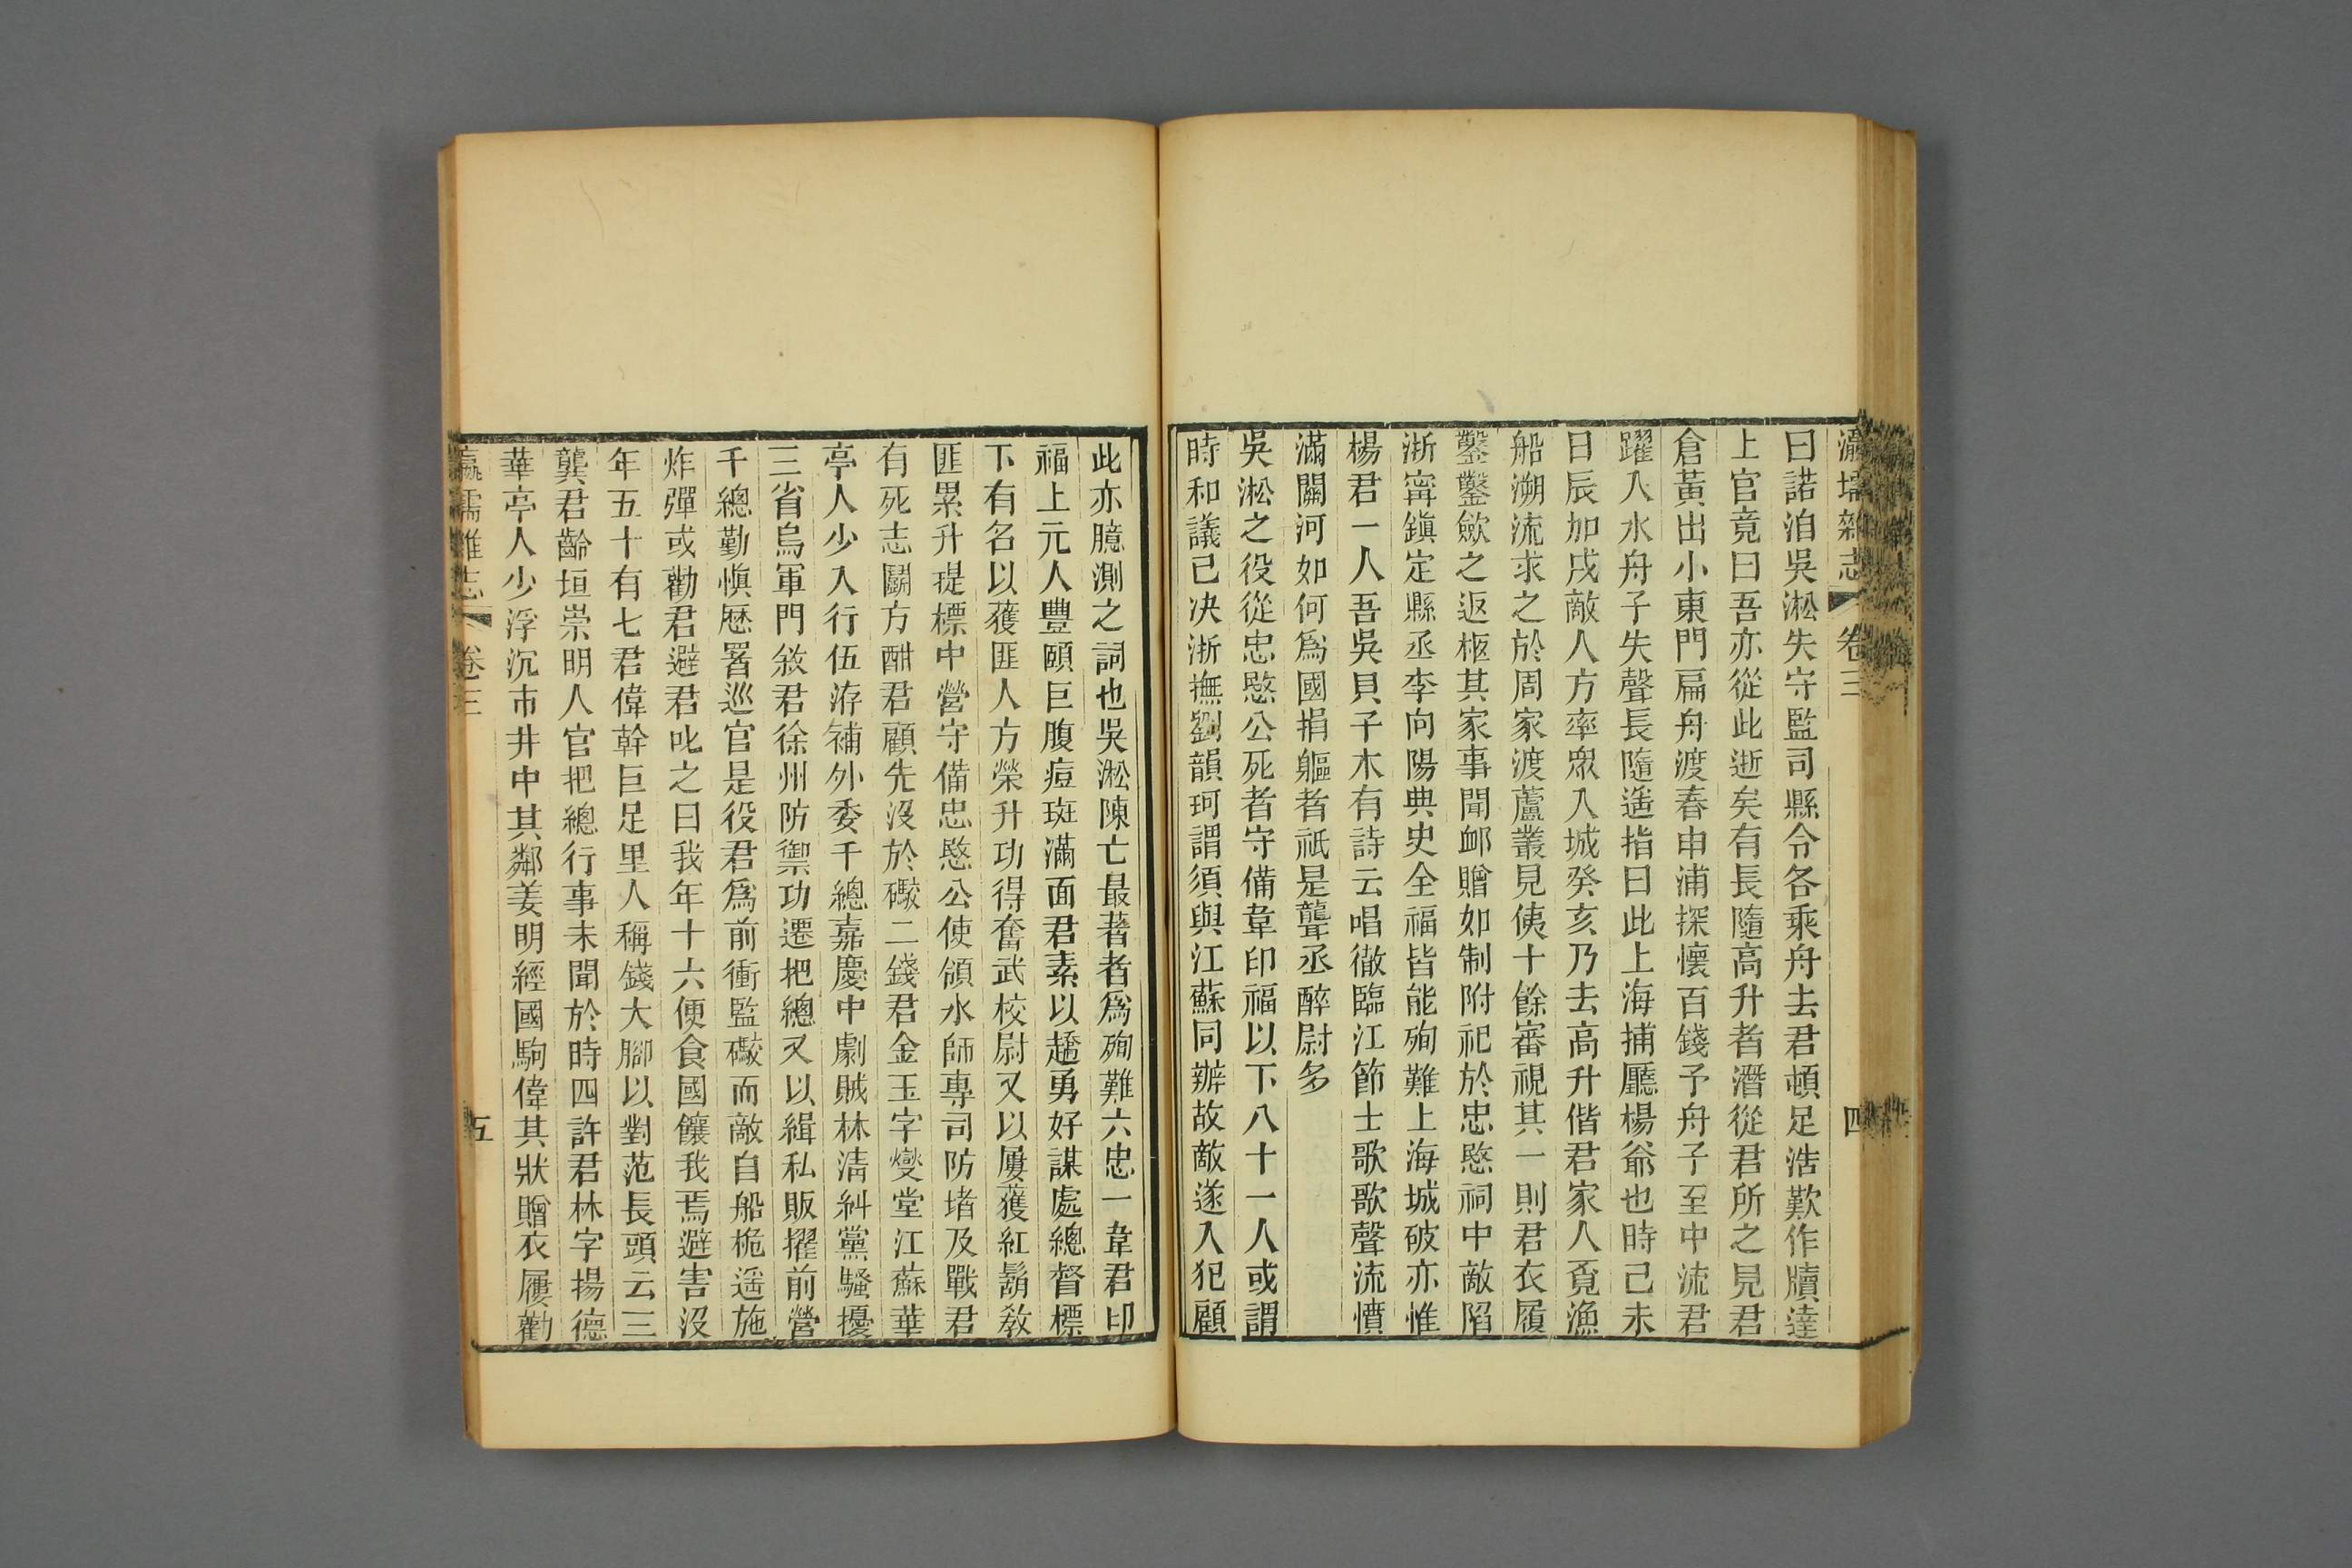 瀛壖雜志 卷三 四
曰諾洎吳淞失守監司縣令各乘舟去君頓足浩歎作牘達
上官竟曰吾亦從此逝矣有長隨高升者潛從君所之見君
倉黃出小東門扁舟渡春申浦探懷百錢予舟子至中流君
躍入水舟子失聲長隨遥指曰此上海捕廳楊爺也時己未
日辰加戌敵人方率眾入城癸亥乃去高升偕君家人覓漁
船溯流求之於周家渡蘆叢見侇十餘審視其一則君衣履
鑿鑿歛之返柩其家事聞卹贈如制附祀於忠愍祠中敵陷
浙甯鎮定縣丞李向陽典史全福皆能殉難上海城破亦惟
楊君一人吾吳貝子木有詩云唱徹臨江節士歌歌聲流憤
滿關河如何為國捐軀者祇是聾丞醉尉多
吳淞之役從忠愍公死者守備韋印福以下八十一人或謂
時和議已決浙撫劉韻珂謂須與江蘇同辦故敵遂入犯顧
此亦臆測之詞也吳淞陳亡最著者為殉難六忠一韋君印
福上元人豐頤巨腹痘斑滿面君素以趫勇好謀處總督標
下有名以獲匪人方榮升功得奮武校尉又以屢獲紅鬍教
匪累升提標中營守備忠愍公使領水師專司防堵及戰君
有死志鬭方酣君顧先沒於礮二錢君金玉字燮堂江蘇華
亭人少入行伍洊補外委千總嘉慶中劇賊林清糾黨騷擾
三省烏軍門檄君徐州防禦功遷把總又以緝私販擢前營
千總勤慎歷署巡官是役君為前衝監礮而敵自船桅遥施
炸彈或勸君避君叱之曰我年十六便食國饟我焉避害沒
年五十有七君偉幹巨足里人稱錢大腳以對范長頭云三
龔君齡垣崇明人官把總行事未聞於時四許君林字揚德
華亭人少浮沉市井中其鄰姜明經國駒偉其狀贈衣屨勸
瀛壖雜志 卷三 五